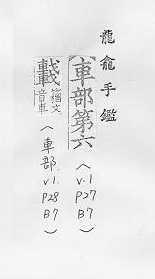 龍龕手鑑
車部第六(v.1 P27 B7)
籀文音車(車部 v1. P28 B7)